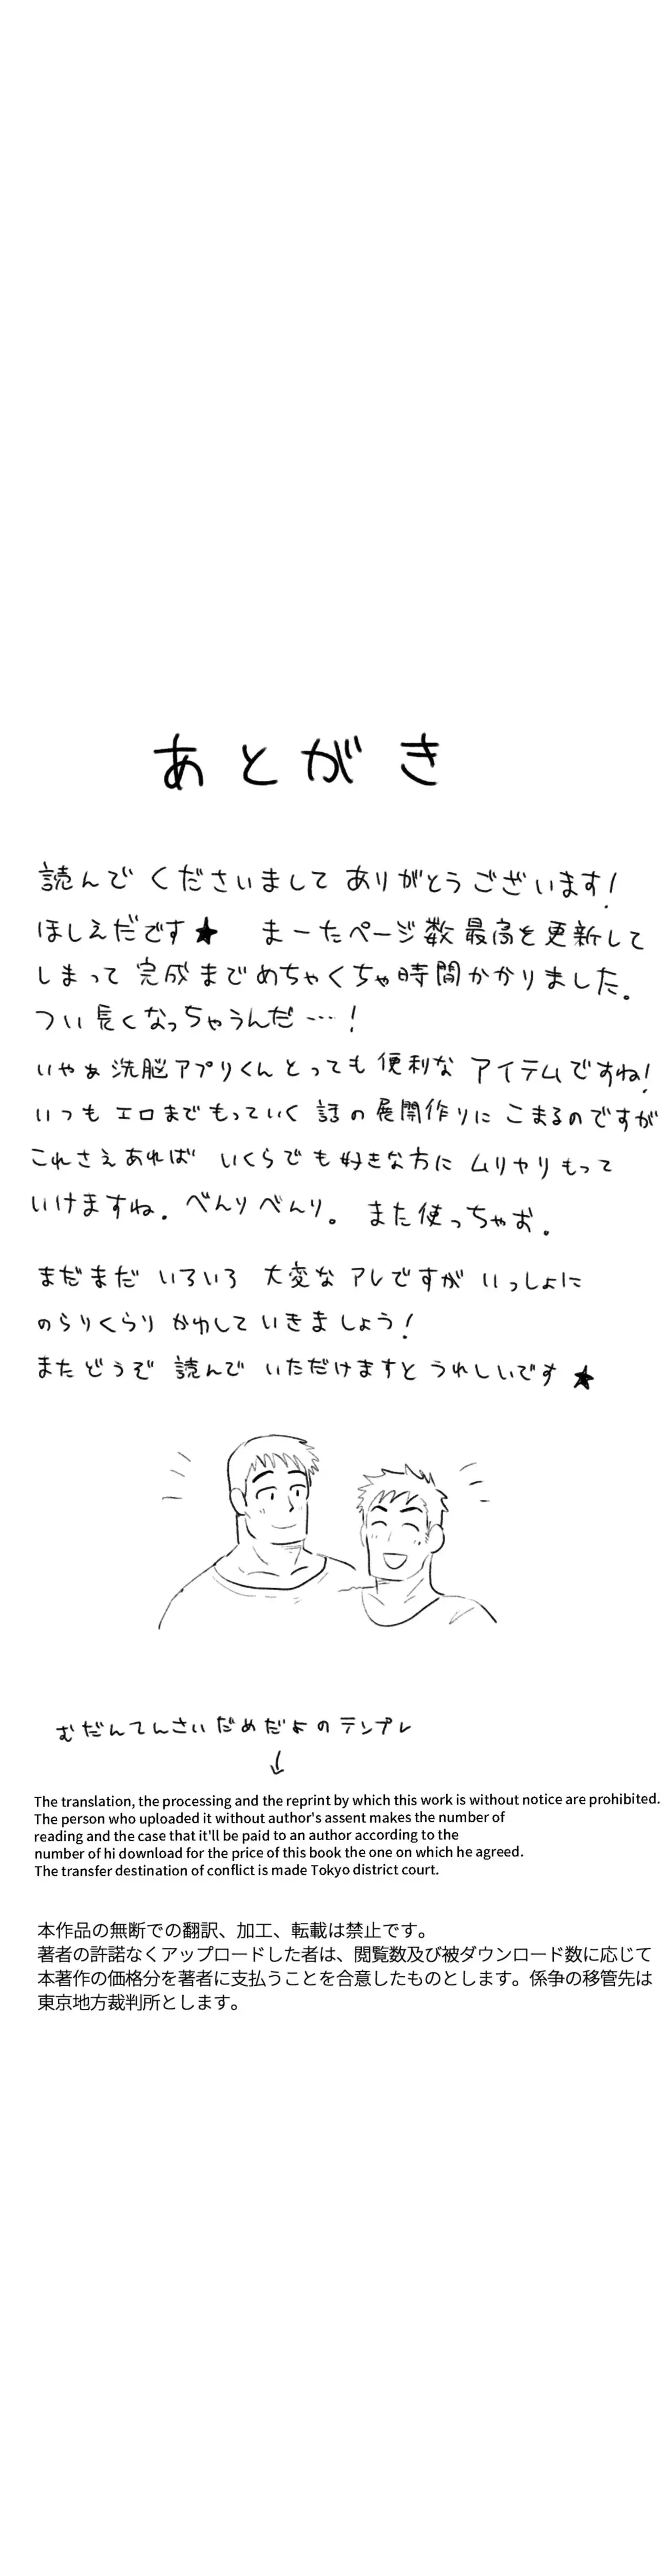 あとがき
読んでくださいまして ありがとうございます!
ほしえだです★ まーたページ数最高を更新して
しまって完成までめちゃくちゃ時間かかりました。
つい長くなっちゃうんだ…!
いやぁ洗脳アプリくんとっても便利なアイテムですね!
いつもエロまでもっていく話の展開作りにこまるのですが
これさえあれば いくらでも好きな方にムリヤリもって
いけますね。べんりべんり。また使っちゃお。
まだまだ いろいろ 大変なアレですが いっしょに
のらりくらり かわしていきましょう!
またどうぞ 読んで いただけますと うれしいです★
むだんてんさいだめだよのテンプレ
↓
The translation, the processing and the reprint by which this work is without notice are prohibited.
The person who uploaded it without author's assent makes the number of
reading and the case that it'll be paid to an author according to the
number of hi download for the price of this book the one on which he agreed.
The transfer destination of conflict is made Tokyo district court.
本作品の無断での翻訳、加工、転載は禁止です。
著者の許諾なくアップロードした者は、閲覧数及び被ダウンロード数に応じて
本著作の価格分を著者に支払うことを合意したものとします。係争の移管先は
東京地方裁判所とします。